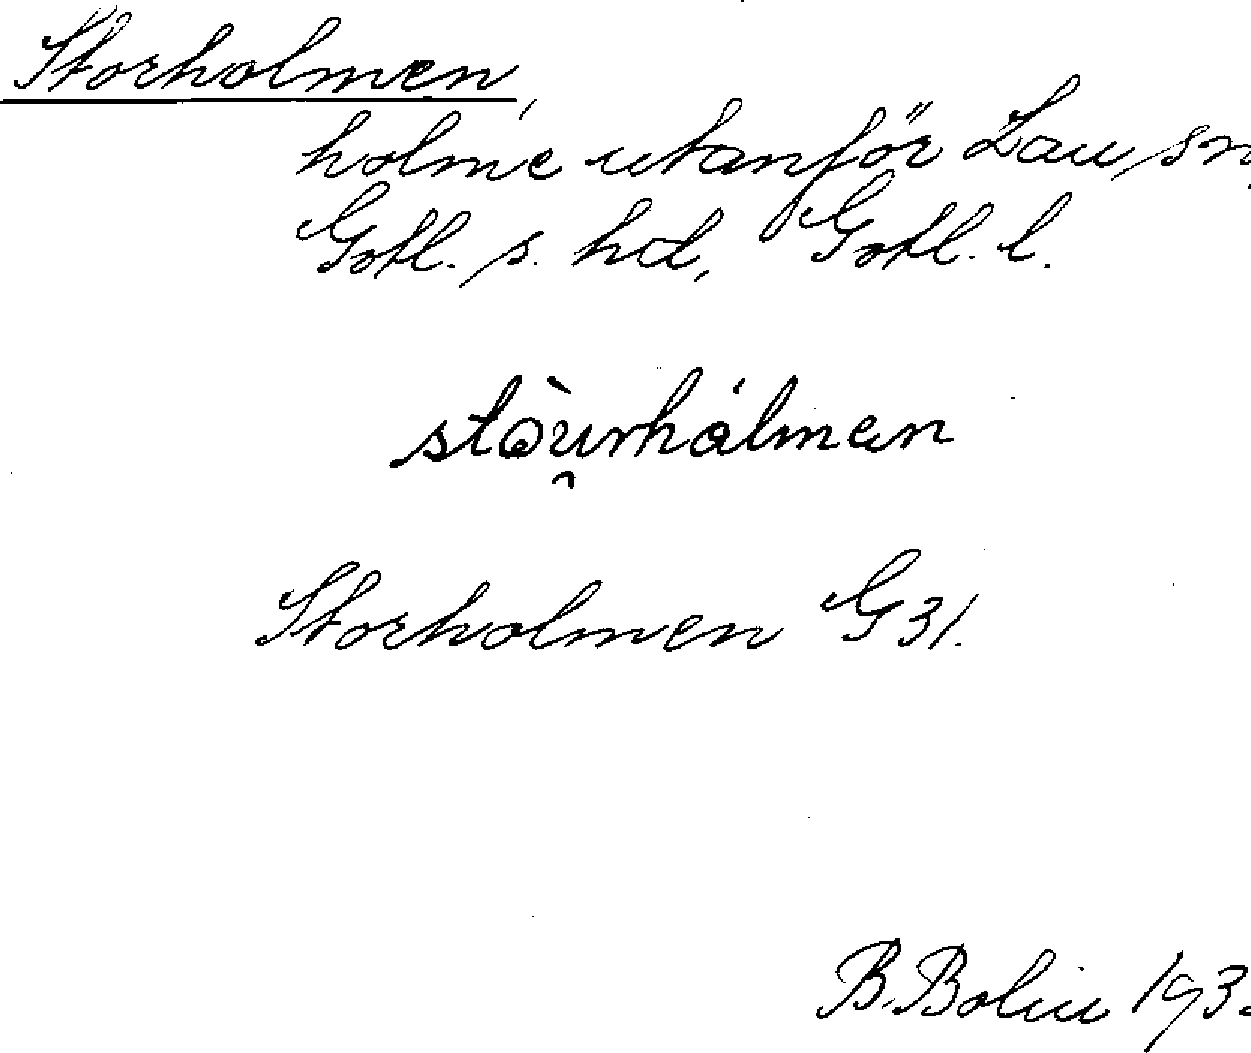 Storholmen,
holme utanför Lau sn,
Gotl. s. hd, Gotl. l.
stòu̯rhálmen
Storholmen G31.
B. Bolin 193